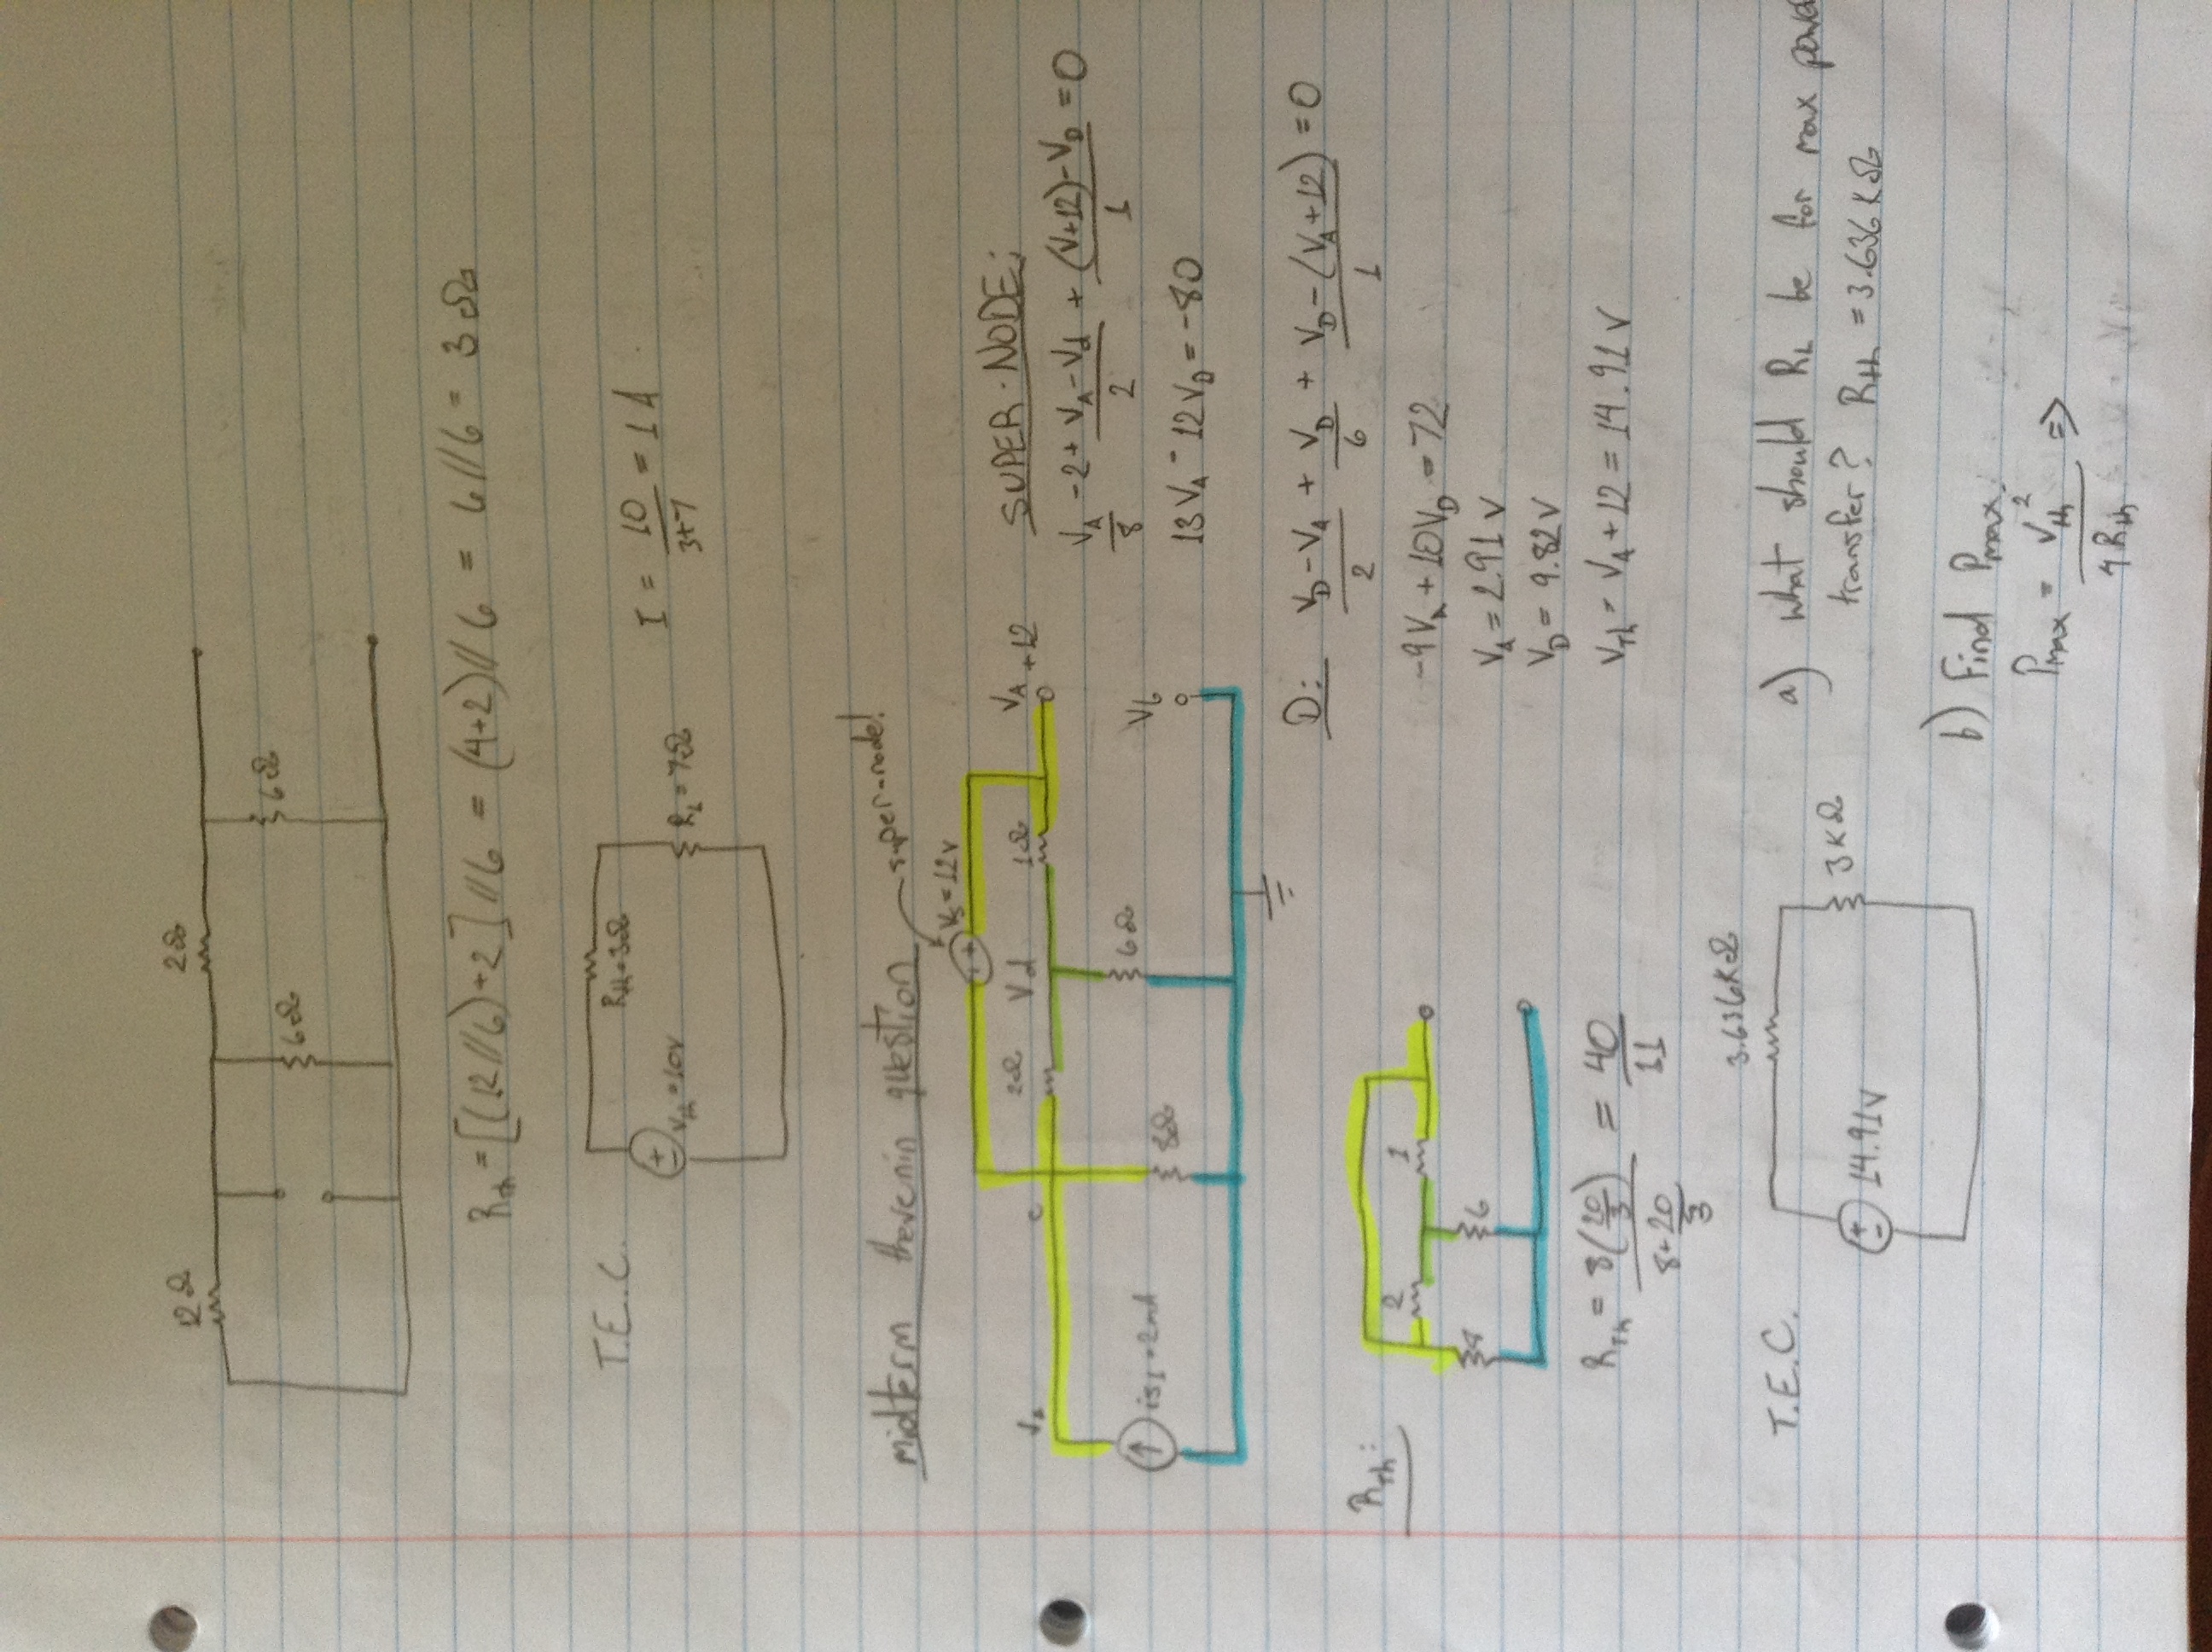 12Ω
2Ω
6Ω
6Ω
R_th = [(12//6)+2]//6 = (4+2)//6 = 6//6 = 3Ω
T.E.C.
R_th=3Ω
V_th=10V
R_L=7Ω
I = 10/(3+7) = 1A
midterm thevenin question
super-node!
V_s=12V
2Ω
Vd
1Ω
V_A +12
c
is_1=2mA
8Ω
6Ω
V_b
SUPER-NODE:
V_A/8 -2+ (V_A-V_d)/2 + ((V+12)-V_D)/1 =0
13V_A - 12V_D = -80
D: (V_D-V_A)/2 + V_D/6 + (V_D-(V_A+12))/1 =0
-9V_A + 10V_D = 72
V_A = 2.91 V
V_D = 9.82V
V_Th = V_A + 12 = 14.91 V
R_Th:
2
1
8
6
R_Th = 8(20/3)/(8+20/3) = 40/11
T.E.C.
3.636KΩ
14.91V
3KΩ
a) what should R_L be for max power
transfer? R_th = 3.636KΩ
b) Find P_max.
P_max = V_th²/4R_th ⇒